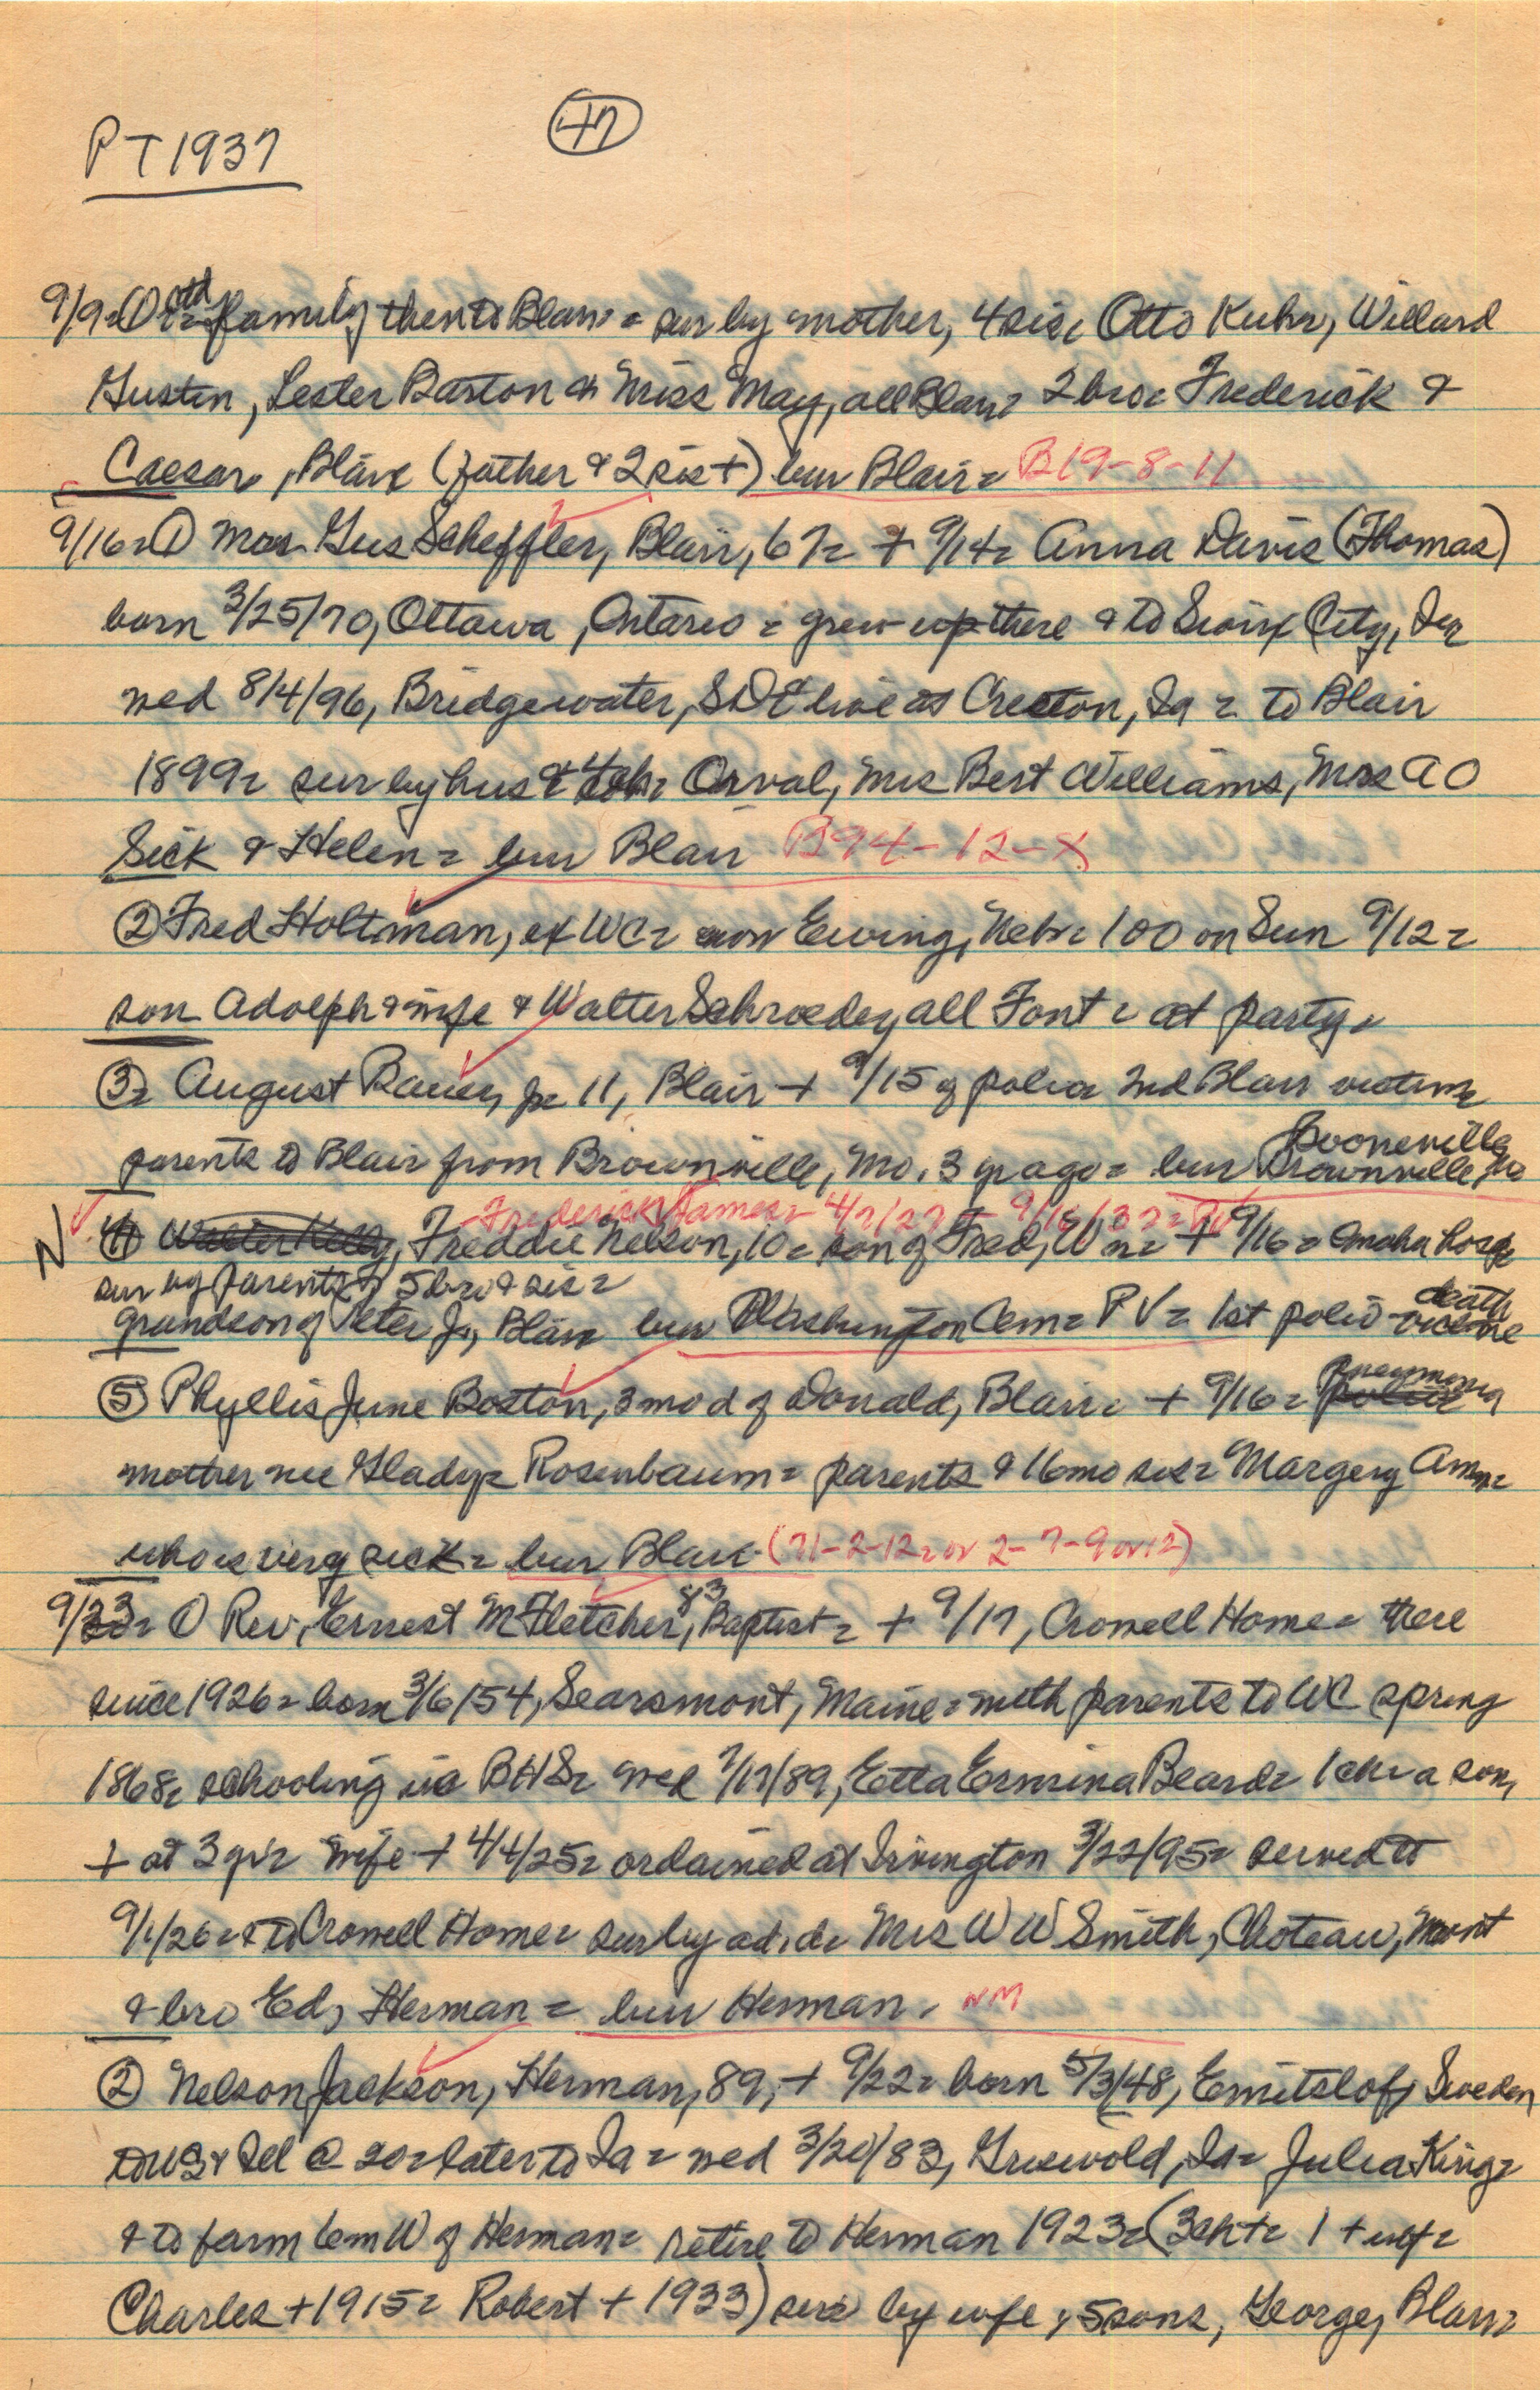 PT 1937
47
9/9=① family then to Blair = sur by mother, 4 sis= Otto Kuhr, Willard
Gustin, Lester Barton & Miss May, all Blair= 2 bro= Frederick &
Caesar, Blair (father & 2 sis +) bur Blair= B19-8-11
9/16=① Mrs Gus Scheffler, Blair, 67= + 9/14= Anna Davis (Thomas)
born 3/25/70, Ottawa, Ontario = grew up there & to Sioux City, Ia
wed 8/4/96, Bridgewater, SD & live at Creston, Ia = to Blair
1899= sur by hus & 4 ch= Orval, Mrs Bert Williams, Mrs A O
Sick & Helen = bur Blair B94-12-X
② Fred Holtman, ex WC= now Ewing, Nebr= 100 on Sun 9/12=
son Adolph & wife & Walter Schroeder, all Font = at party=
③= August Bauer, jr 11, Blair + 9/15 of polio= 2nd Blair victim=
parents to Blair from Brownville, Mo. 3 yr ago= bur Brownville, Mo
Booneville
Frederick James= 4/7/27 - 9/16/37= PV
N ④ Walter Kelly, Freddie Nelson, 10= son of Fred, Wn= + 9/16= Omaha hosp
sur by parents & 5 bro & sis=
grandson of Peter Jr, Blair bur Washington Cem= PV= 1st polio victim
death
pneumonia
⑤ Phyllis June Boston, 3 mo d of Donald, Blair= + 9/16= polio
mother nee Gladys Rosenbaum= parents & 16 mo sis= Margery Ann=
who is very sick= bur Blair (71-2-12= or 2-7-9 or 12)
9/23= ① Rev. Ernest M Fletcher, 83, Baptist= + 9/17, Crowell Home= there
since 1926= born 3/6/54, Searsmont, Maine= with parents to WC spring
1868= schooling in BHS= wed 7/17/89, Etta Ermina Beard= 1 ch= a son,
+ at 3 yr= wife + 4/4/25= ordained at Irvington 3/22/95= served to
9/1/26= & to Crowell Home= sur by ad. d= Mrs W W Smith, Choteau, Mont
& bro Ed, Herman = bur Herman. NM
② Nelson Jackson, Herman, 89, + 9/22= born 5/3/48, Emitslof, Sweden
to US & Ill @ 20= later to Ia= wed 3/20/83, Griswold, Ia= Julia King=
& to farm 6 m W of Herman= retire to Herman 1923= (3 ch+= 1 + inf=
Charles + 1915= Robert + 1933) sur by wife & 5 sons, George, Blair=